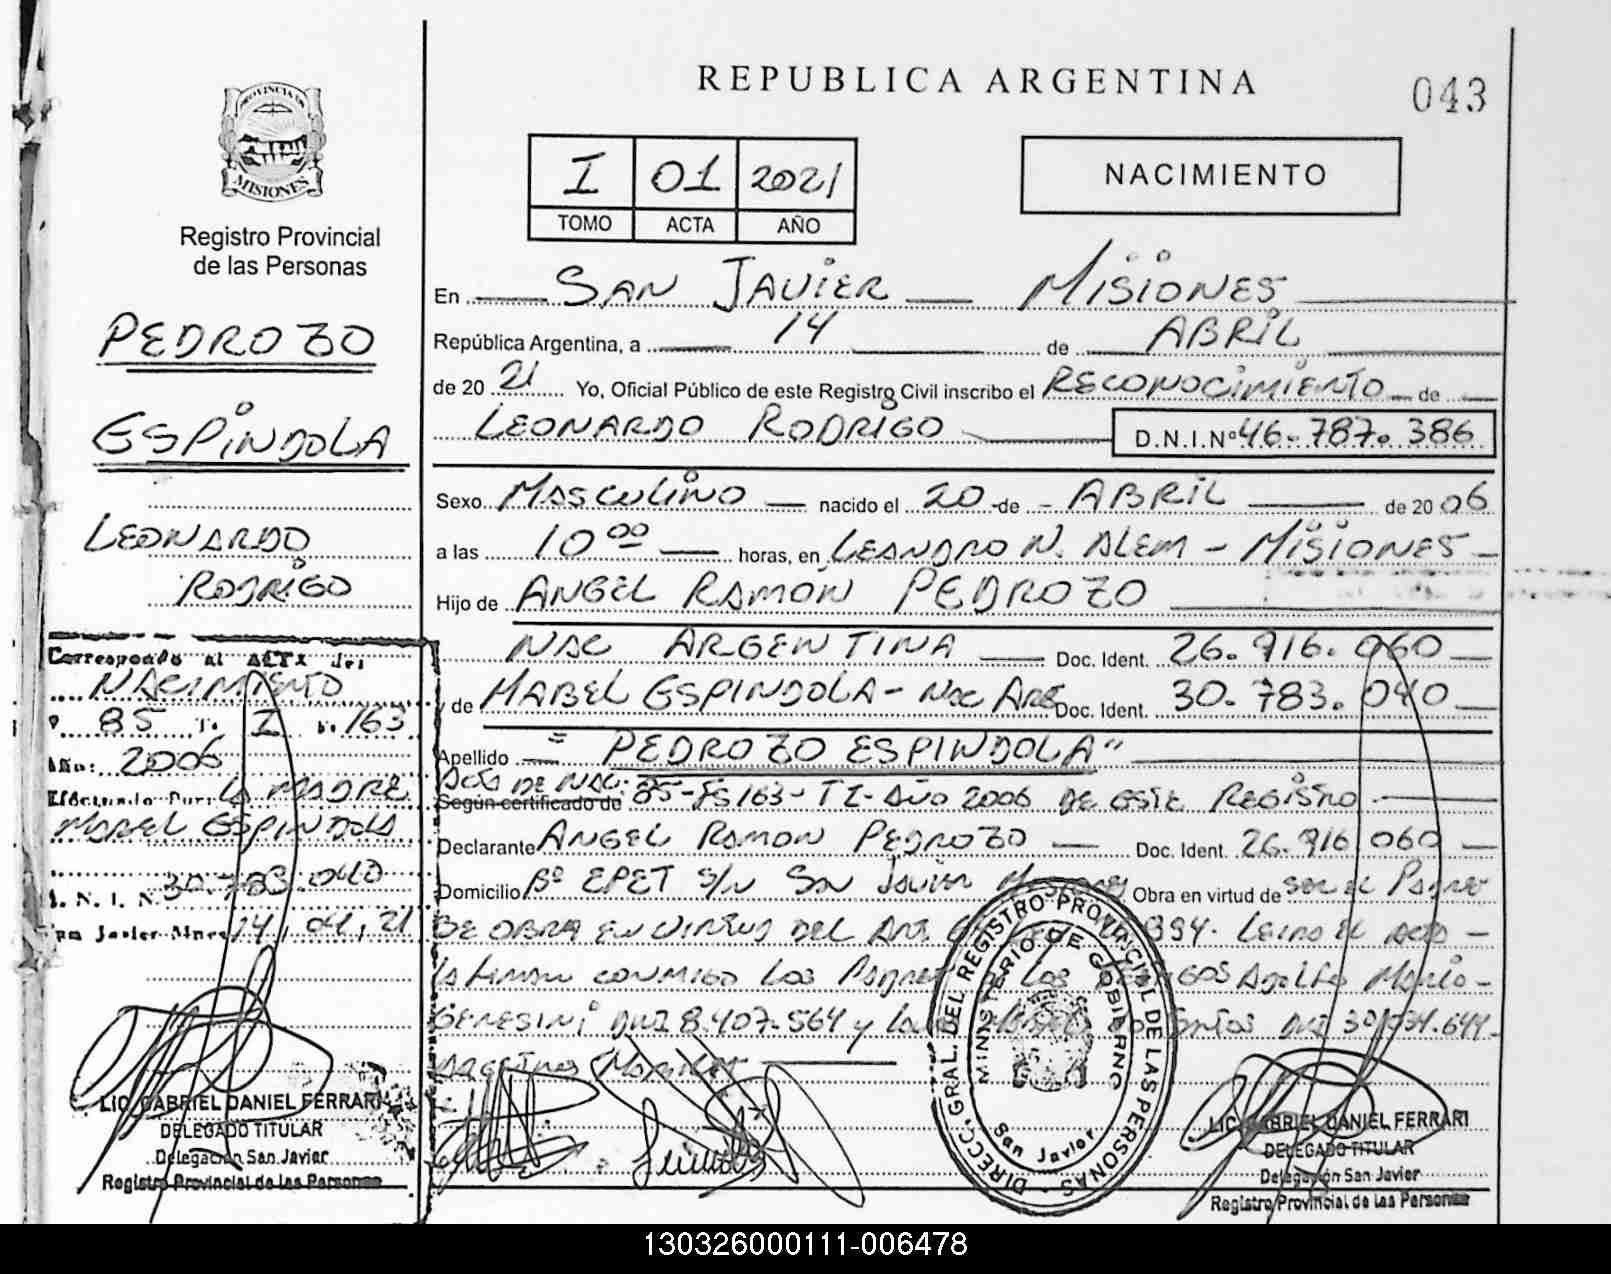 REPUBLICA ARGENTINA
043
PROVINCIA DE
MISIONES
Registro Provincial
de las Personas
I 01 2021
TOMO ACTA AÑO
NACIMIENTO
PEDROZO
ESPINDOLA
LEONARDO
RODRIGO
Corresponde al ACTA del
NACIMIENTO
F. 85 T. I F. 163
Año: 2006
Efectuado Por: LA MADRE
MABEL ESPINDOLA
D. N. I. N. 30.783.040
San Javier Mnes 14, 04, 21
LIC. GABRIEL DANIEL FERRARI
DELEGADO TITULAR
Delegación San Javier
Registro Provincial de las Personas
En SAN JAVIER MISIONES
República Argentina, a 14 de ABRIL
de 20 21 Yo, Oficial Público de este Registro Civil inscribo el RECONOCIMIENTO de
LEONARDO RODRIGO D.N.I.Nº 46.787.386
Sexo MASCULINO nacido el 20 de ABRIL de 20 06
a las 10 00 horas, en LEANDRO N. ALEM - MISIONES -
Hijo de ANGEL RAMON PEDROZO
NAC ARGENTINA Doc. Ident. 26.916.060
y de MABEL ESPINDOLA - NAC ARG Doc. Ident. 30.783.040
Apellido = "PEDROZO ESPINDOLA"
ACTA DE NAC:
Según certificado de 85-FS 163-T I-AÑO 2006 DE ESTE REGISTRO
Declarante ANGEL RAMON PEDROZO Doc. Ident. 26.916.060
Domicilio Bº EPET S/N SAN JAVIER MISIONES Obra en virtud de SER EL PADRE
SE OBRA EN VIRTUD DEL ART. LEIDO EL ACTA -
LA FIRMAN CONMIGO LOS PADRES Y LOS TESTIGOS ADOLFO MARIO -
GENESINI DNI 8.407.564 y DNI
ARGENTINOS
DIRECC. GRAL. DEL REGISTRO PROVINCIAL DE LAS PERSONAS
MINISTERIO DE GOBIERNO
San Javier
LIC. GABRIEL DANIEL FERRARI
DELEGADO TITULAR
Delegación San Javier
Registro Provincial de las Personas
130326000111-006478